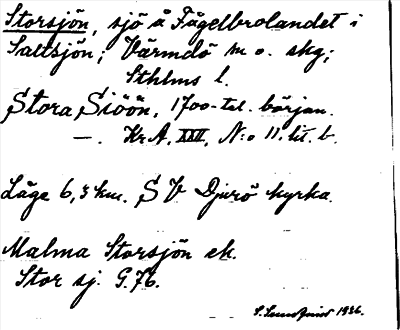 Storsjön, sjö å Fågelbrolandet i
Saltsjön; Värmdö m o. skg;
Sthlms l.
Stora Siöön, 1700-tal. början.
—. Kr.A. XXV, N:o 11. lit. b.
Läge 6,3 km. S V Djurö kyrka.
Malma Storsjön ek.
Stor sj. G.76.
1936.